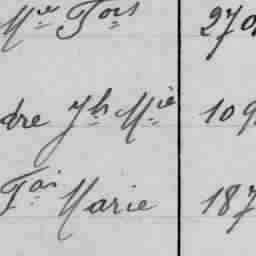 Mie Fois 270
dre Jh Mie 109
Foi Marie 187